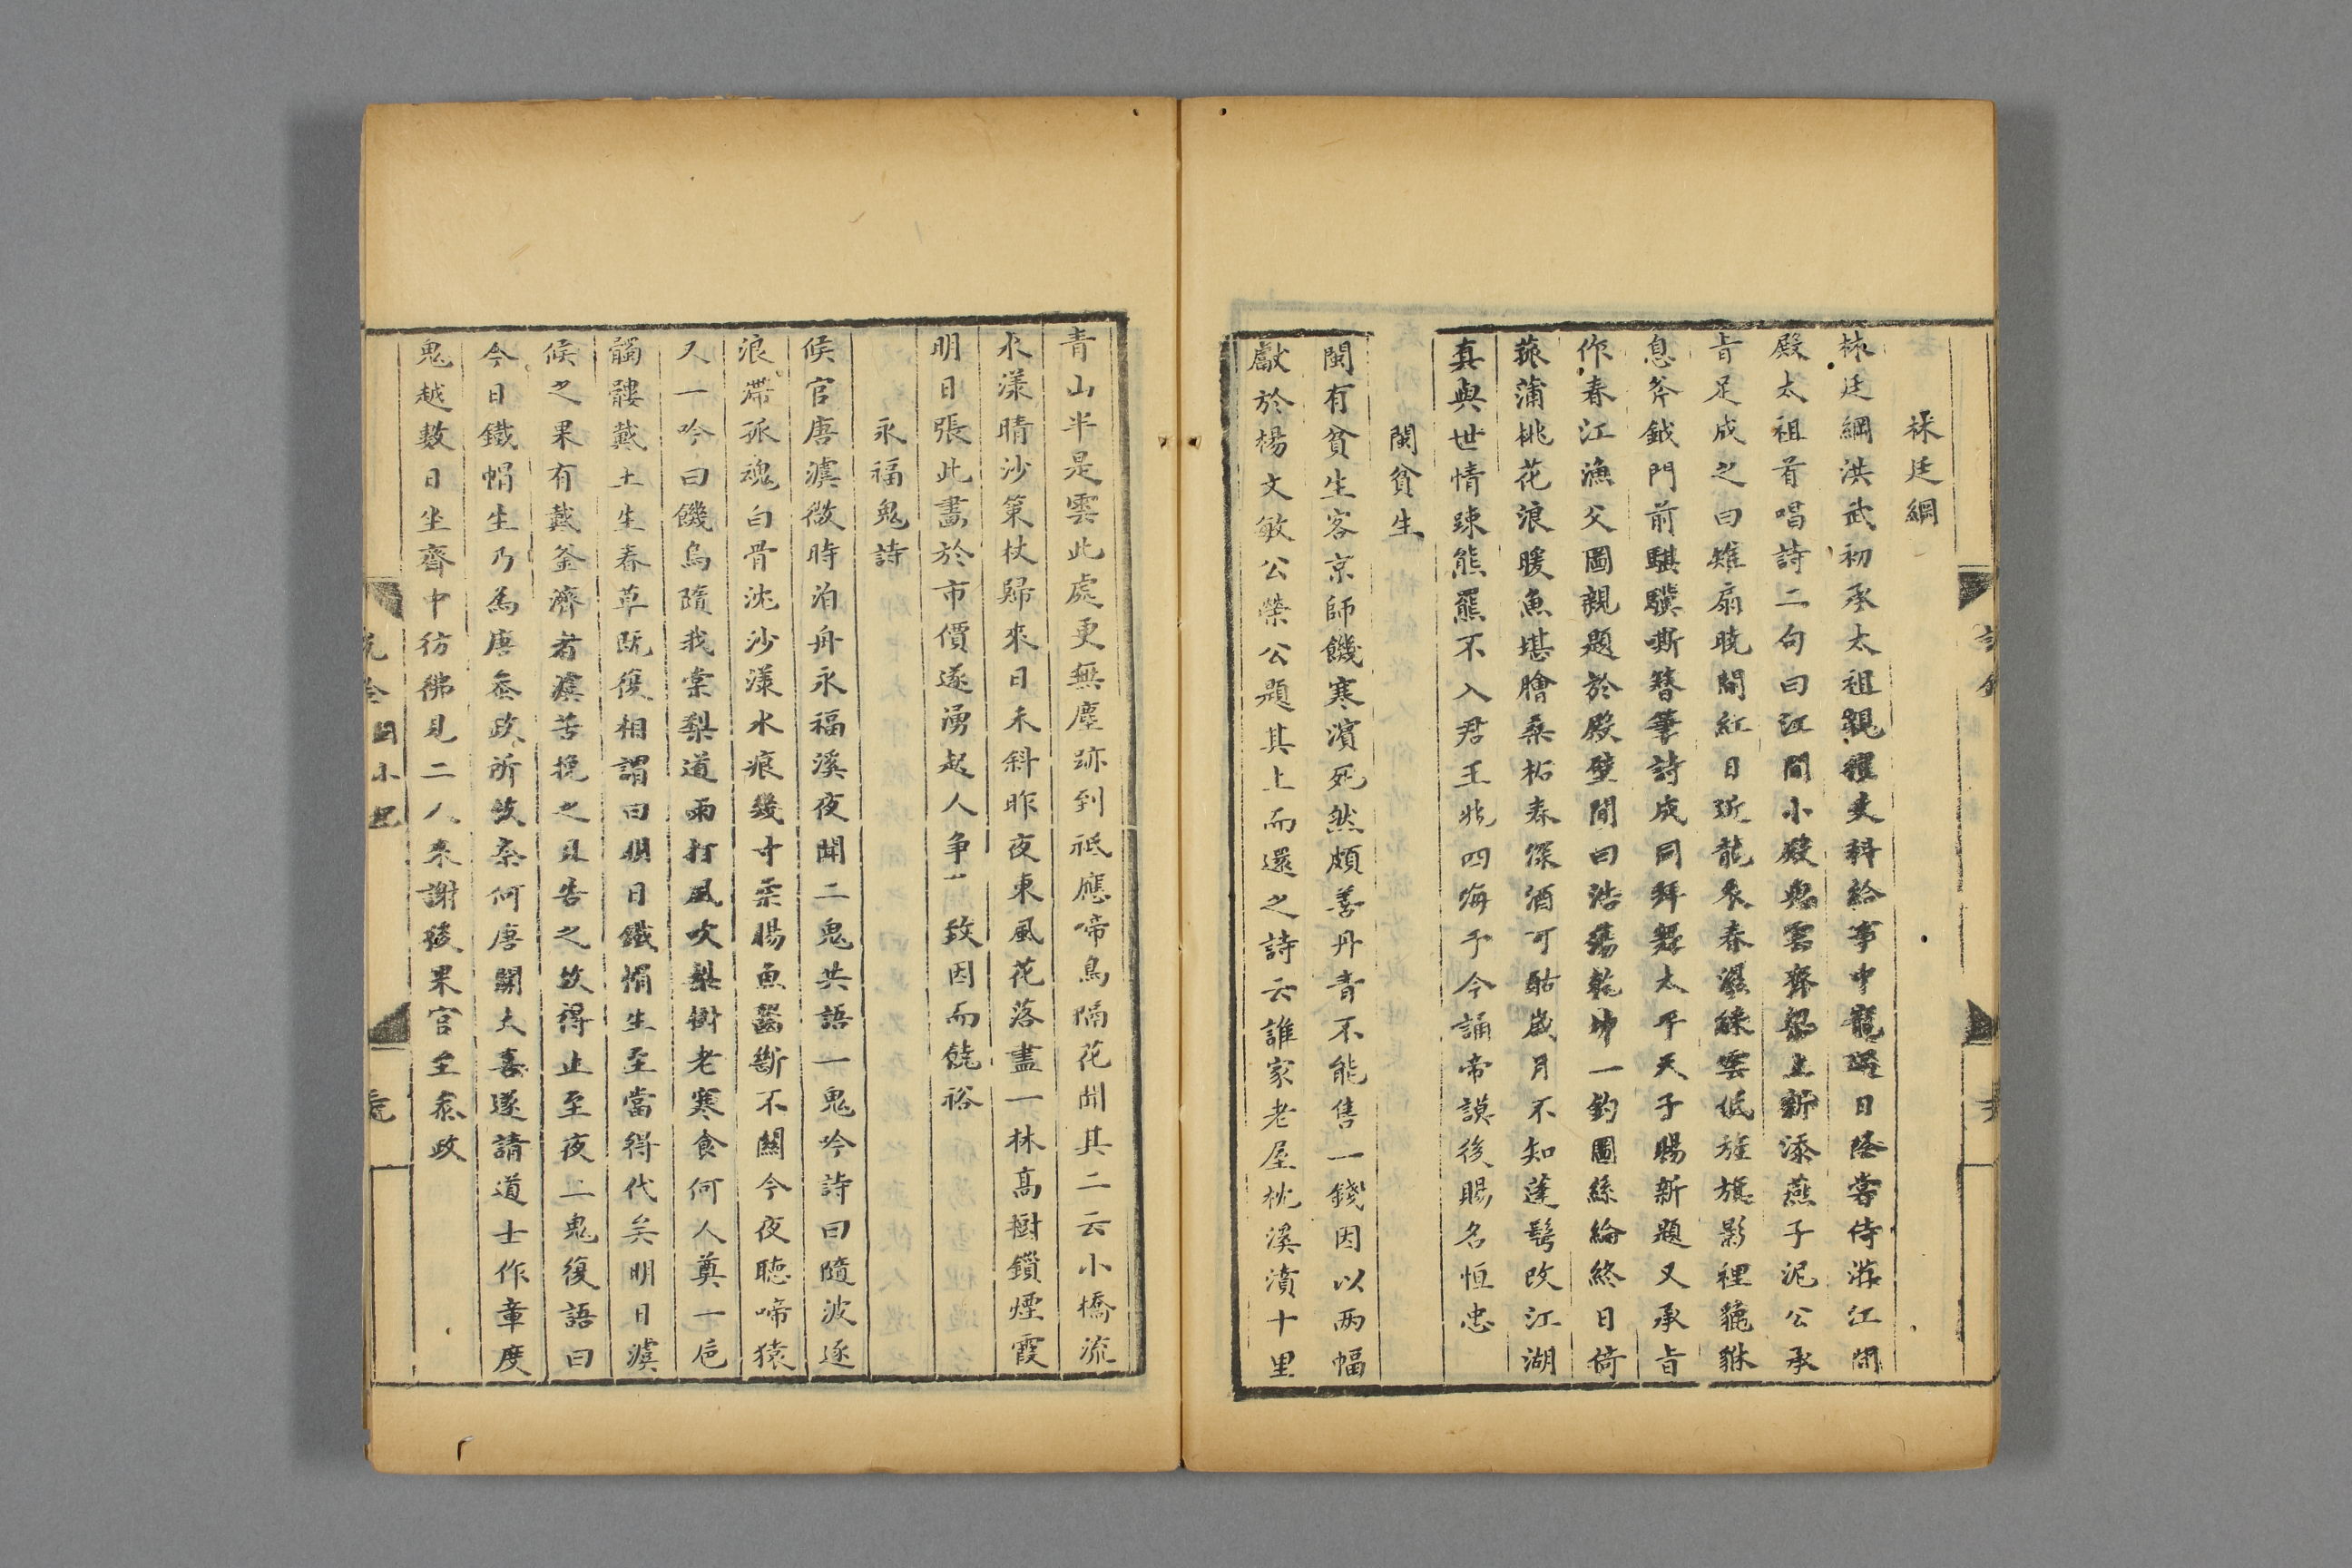 林廷綱
林廷綱洪武初承太祖親擢吏科給事中寵遇日隆嘗侍游江閣
殿太祖首唱詩二句曰江閣小殿鬼雲齊梁上新添燕子泥公承
旨足成之曰雉扇曉開紅日近龍衣春濕綵雲低旌旗影裡貔貅
息斧鉞門前騏驥嘶簪筆詩成同拜舞太平天子賜新題又承旨
作春江漁父圖親題於殿壁間曰浩蕩乾坤一釣圖絲綸終日倚
菰蒲桃花浪暖魚堪膾桑柘春深酒可酤歲月不知蓬鬂改江湖
真與世情踈熊羆不入君王兆四海于今誦帝謨後賜名恒忠
閩貧生
閩有貧生客京師饑寒濱死然頗善丹青不能售一錢因以兩幅
獻於楊文敏公榮公題其上而還之詩云誰家老屋枕溪濆十里
青山半是雲此處更無塵跡到祗應啼鳥隔花聞其二云小橋流
水漾晴沙策杖歸來日未斜昨夜東風花落盡一林高樹鎖煙霞
明日張此畵於市價遂湧起人争一致因而饒裕
永福鬼詩
候官唐濵微時泊舟永福溪夜聞二鬼共語一鬼吟詩曰隨波逐
浪滯孤魂白骨沈沙漾水痕幾寸柔腸魚齧斷不關今夜聴啼猿
又一吟曰饑烏隨我棠梨道雨打風吹梨樹老寒食何人奠一巵
髑髏戴土生春草旣復相謂曰明日鐵帽生至當得代矣明日濵
候之果有戴釜濟者濵苦挽之且告之故得止至夜二鬼復語曰
今日鐵帽生乃為唐叅政所救奈何唐聞大喜遂請道士作章度
鬼越數日坐齋中彷彿見二人來謝後果官至叅政